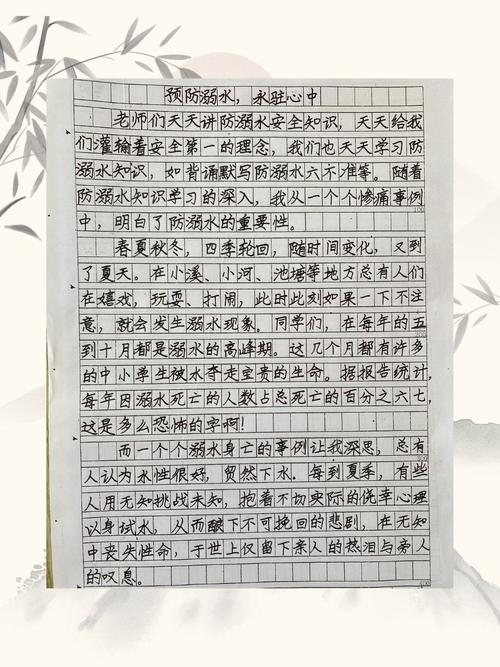 预防溺水，永驻心中
老师们天天讲防溺水安全知识，天天给我
们灌输着安全第一的理念，我们也天天学习防
溺水知识，如背诵默写防溺水六不准等。随着
防溺水知识学习的深入，我从一个个惨痛事例
中，明白了防溺水的重要性。
春夏秋冬，四季轮回，随时间变化，又到
了夏天。在小溪、小河、池塘等地方总有人们
在嬉戏，玩耍、打闹，此时此刻如果一下不注
意，就会发生溺水现象。同学们，在每年的五
到十月都是溺水的高峰期。这几个月都有许多
的中小学生被水夺走宝贵的生命。据报告统计，
每年因溺水死亡的人数占总死亡的百分之六七，
这是多么恐怖的字啊！
而一个个溺水身亡的事例让我深思，总有
人认为水性很好，贸然下水。每到夏季，有些
人用无知挑战未知，抱着不切实际的侥幸心理
以身试水，从而酿下不可挽回的悲剧，在无知
中丧失性命，于世上仅留下亲人的热泪与旁人
的叹息。